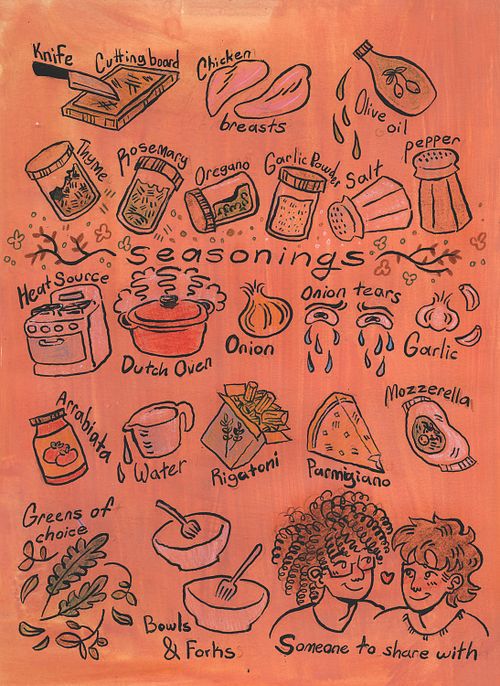 Knife
Cutting board
Chicken
breasts
Olive
oil
Thyme
Rosemary
Oregano
Garlic Powder
Salt
pepper
Seasonings
Heat Source
Dutch Oven
Onion
Onion tears
Garlic
Arrabiata
Water
Rigatoni
Parmigiano
Mozzerella
Greens of
choice
Bowls
& Forks
Someone to share with